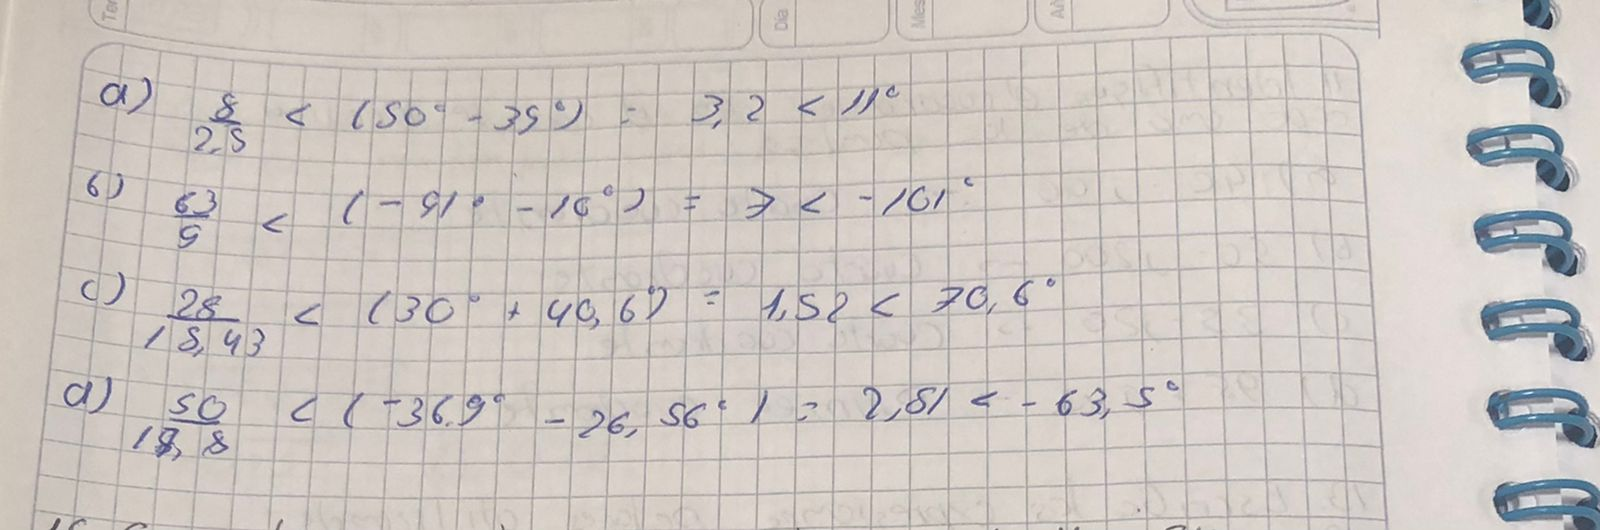 Dia
Mes
a) 8/2,5 < (50° - 39°) = 3,2 < 11°
b) 63/9 < (-91° - 10°) = 7 < -101°
c) 28/18,43 < (30° + 40,6°) = 1,52 < 70,6°
d) 50/19,8 < (-36.9° - 26,56°) = 2,51 < -63,5°